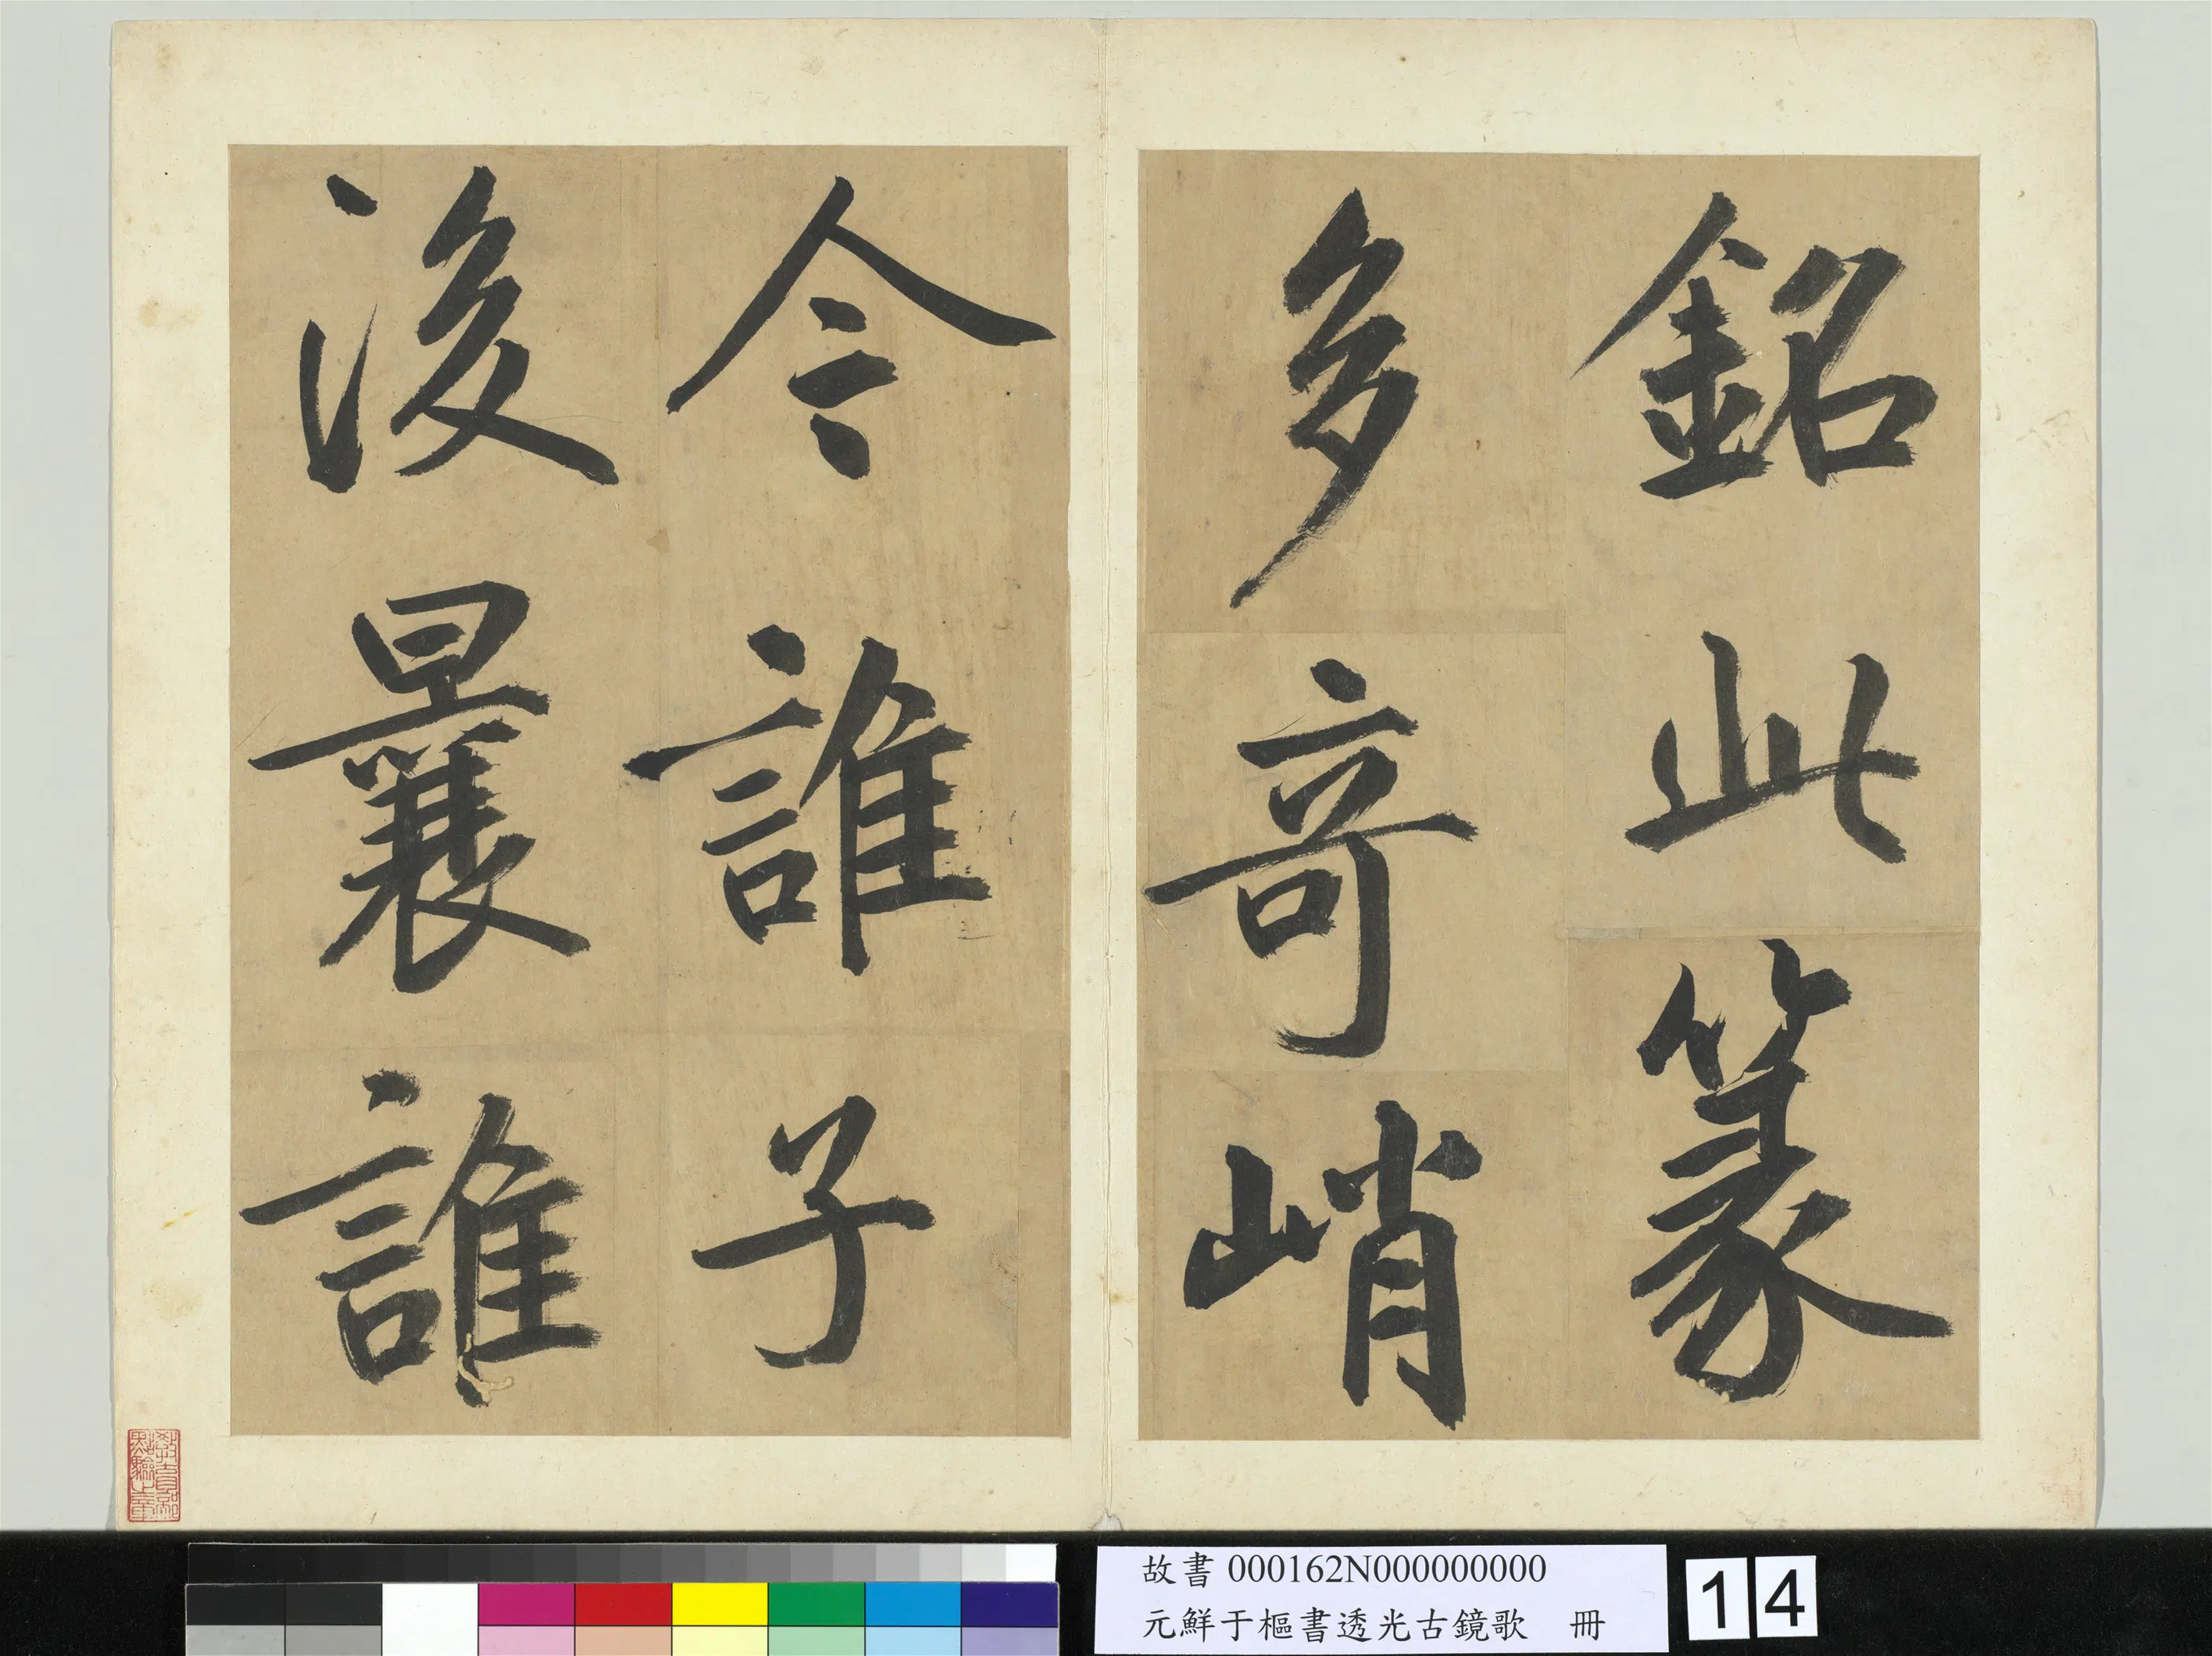 銘此篆
多奇峭
今誰子
後曩誰
教育部點驗之章
故書 000162N000000000
元鮮于樞書透光古鏡歌 冊
14